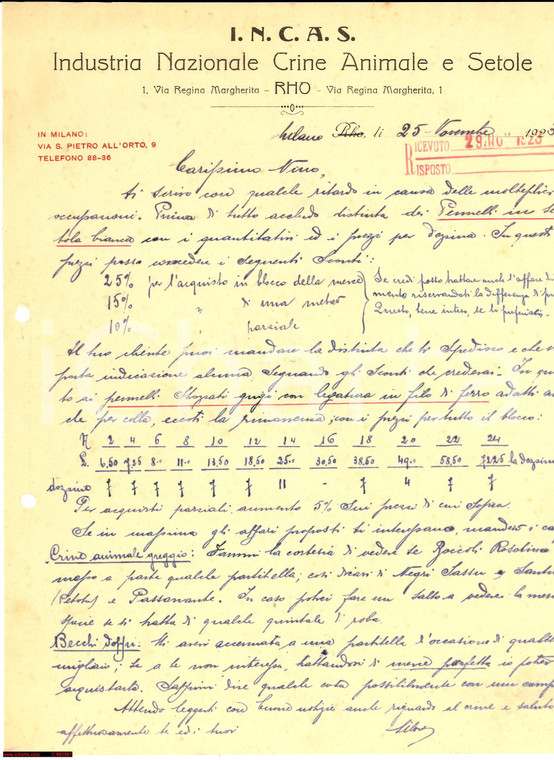 I. N. C. A. S.
Industria Nazionale Crine Animale e Setole
1, Via Regina Margherita - RHO - Via Regina Margherita, 1
IN MILANO:
VIA S. PIETRO ALL'ORTO, 9
TELEFONO 88-36
Milano Rho, li 25 Novembre 192
RICEVUTO 29 NOV 1926
RISPOSTO
Carissimo Nino,
ti scrivo con qualche ritardo in causa delle moltepli
occupazioni. Prima di tutto accludo distinta dei Pennelli in se
tola bianca con i quantitativi ed i prezzi per dozzina. In questi
prezzi posso concedere i seguenti sconti:
25% per l'acquisto in blocco della merce
15% " di una metà
10% " parziale
Se credi posso trattare anche l'affare di
mento riservandoti la differenza di
Questo, bene inteso, se lo preferisci.
Al tuo cliente puoi mandare la distinta che ti spedisco e che
porta indicazione alcuna segnando gli sconti che crederai. In
to ai pennelli Strozzati grigi con legatura in filo di ferro adatti
che per colla, eccoti la rimanenza, con i prezzi per tutto il blocco:
N 2 4 6 8 10 12 14 16 18 20 22 24
L. 6,50 7,25 8.- 11.- 13,50 18,50 25.- 30,50 38,50 49.- 58,50 72,25 la dozzina
dozzine 7 7 7 7 7 11 - 7 4 7 7
Per acquisti parziali aumento 5% sui prezzi di cui sopra.
Se in massima gli affari proposti ti interessano, manderò i
Crino animale greggio: Fammi la cortesia di vedere se Boccoli Rosolino
messo a parte qualche partitella; così dicasi di Negri Sassu e
e Passanante. In caso potrei fare un salto a vedere la merce
se si tratta di qualche quintale di roba.
Becchi d'offri: Mi avevi accennato a una partitella d'occasione di qualche
migliaio; se a te non interessa, trattandosi di merce perfetta io potrei
acquistarla. Sappimi dire qualche cosa possibilmente con un
Attendo leggerti con buone notizie anche riguardo al crine e saluto
affettuosamente te ed i tuoi